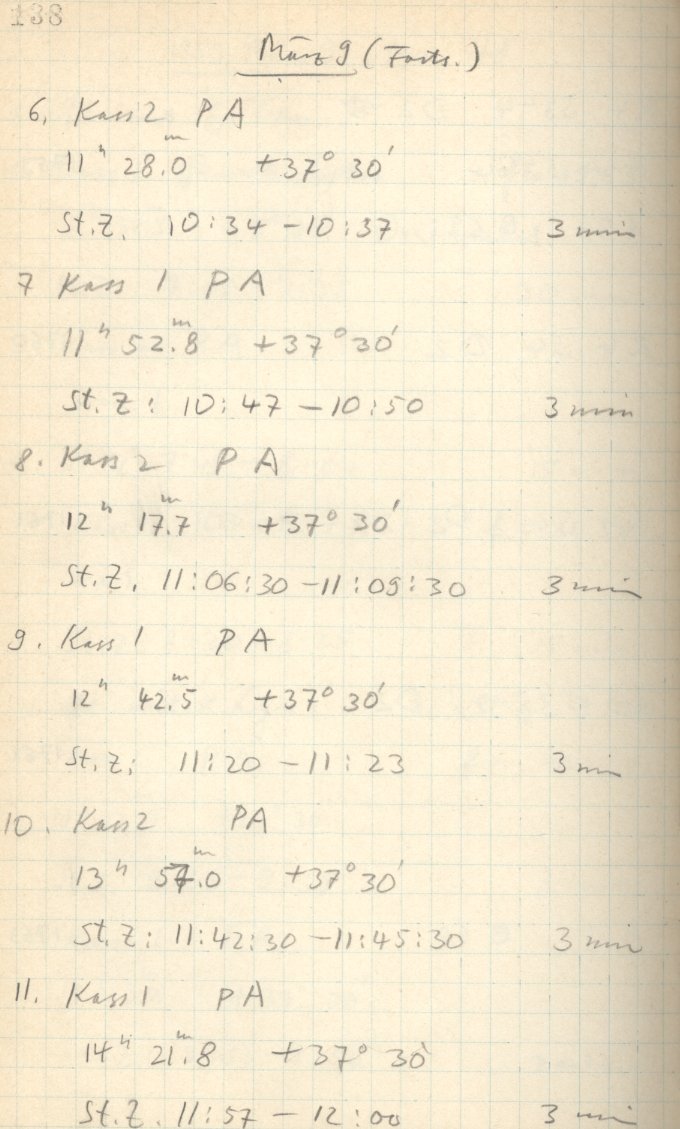 138
März 9 (Forts.)
6. Kass 2 P A
11ʰ 28.0ᵐ +37° 30'
St.Z. 10:34 - 10:37 3 min
7 Kass 1 P A
11ʰ 52.8ᵐ +37° 30'
St.Z: 10:47 - 10:50 3 min
8. Kass 2 P A
12ʰ 17.7ᵐ +37° 30'
St.Z. 11:06:30 - 11:09:30 3 min
9. Kass 1 P A
12ʰ 42.5ᵐ +37° 30'
St.Z: 11:20 - 11:23 3 min
10. Kass 2 PA
13ʰ 57.0ᵐ +37° 30'
St.Z: 11:42:30 - 11:45:30 3 min
11. Kass 1 P A
14ʰ 21.8ᵐ +37° 30'
St.Z. 11:57 - 12:00 3 min